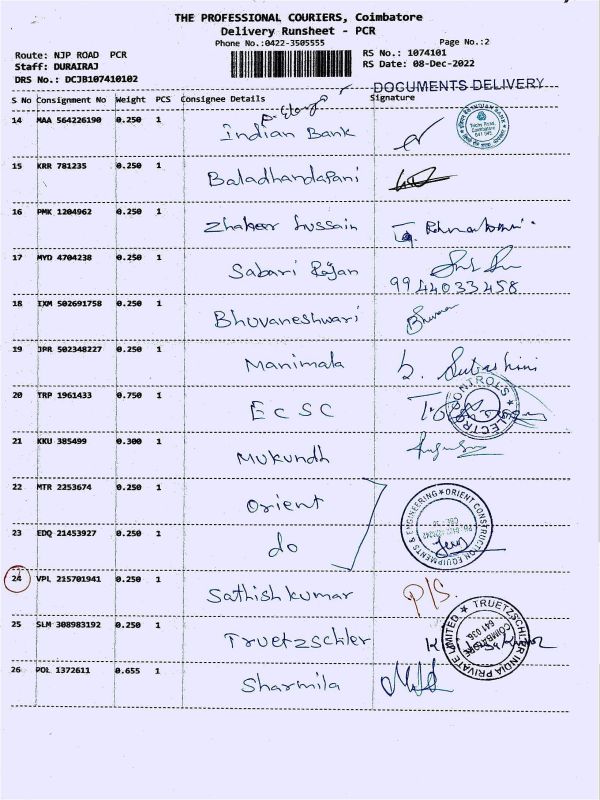 THE PROFESSIONAL COURIERS, Coimbatore
Delivery Runsheet - PCR
Phone No.:0422-3505555
Page No.:2
Route: NJP ROAD PCR
RS No.: 1074101
Staff: DURAIRAJ
RS Date: 08-Dec-2022
DRS No.: DCJB107410102
DOCUMENTS DELIVERY
S No Consignment No Weight PCS Consignee Details Signature
14 MAA 564226190 0.250 1 Indian Bank
15 KRR 781235 0.250 1 Baladhandapani
16 PMK 1204962 0.250 1 Zhakeer hussain
17 MYD 4704238 0.250 1 Sabari Rajan
9944033458
18 IXM 502691758 0.250 1 Bhuvaneshwari
19 JPR 502348227 0.250 1 Manimala
20 TRP 1961433 0.750 1 ECSC
21 KKU 385499 0.300 1 Mukundh
22 MTR 2253674 0.250 1 Orient
ORIENT CONSTRUCTION EQUIPMENTS & ENGINEERING
23 EDQ 21453927 0.250 1 do
24 VPL 215701941 0.250 1 Sathish kumar P/S.
25 SLM 308983192 0.250 1 Truetzschler
TRUETZSCHLER INDIA PRIVATE LIMITED
COIMBATORE
641 035.
26 POL 1372611 0.655 1 Sharmila